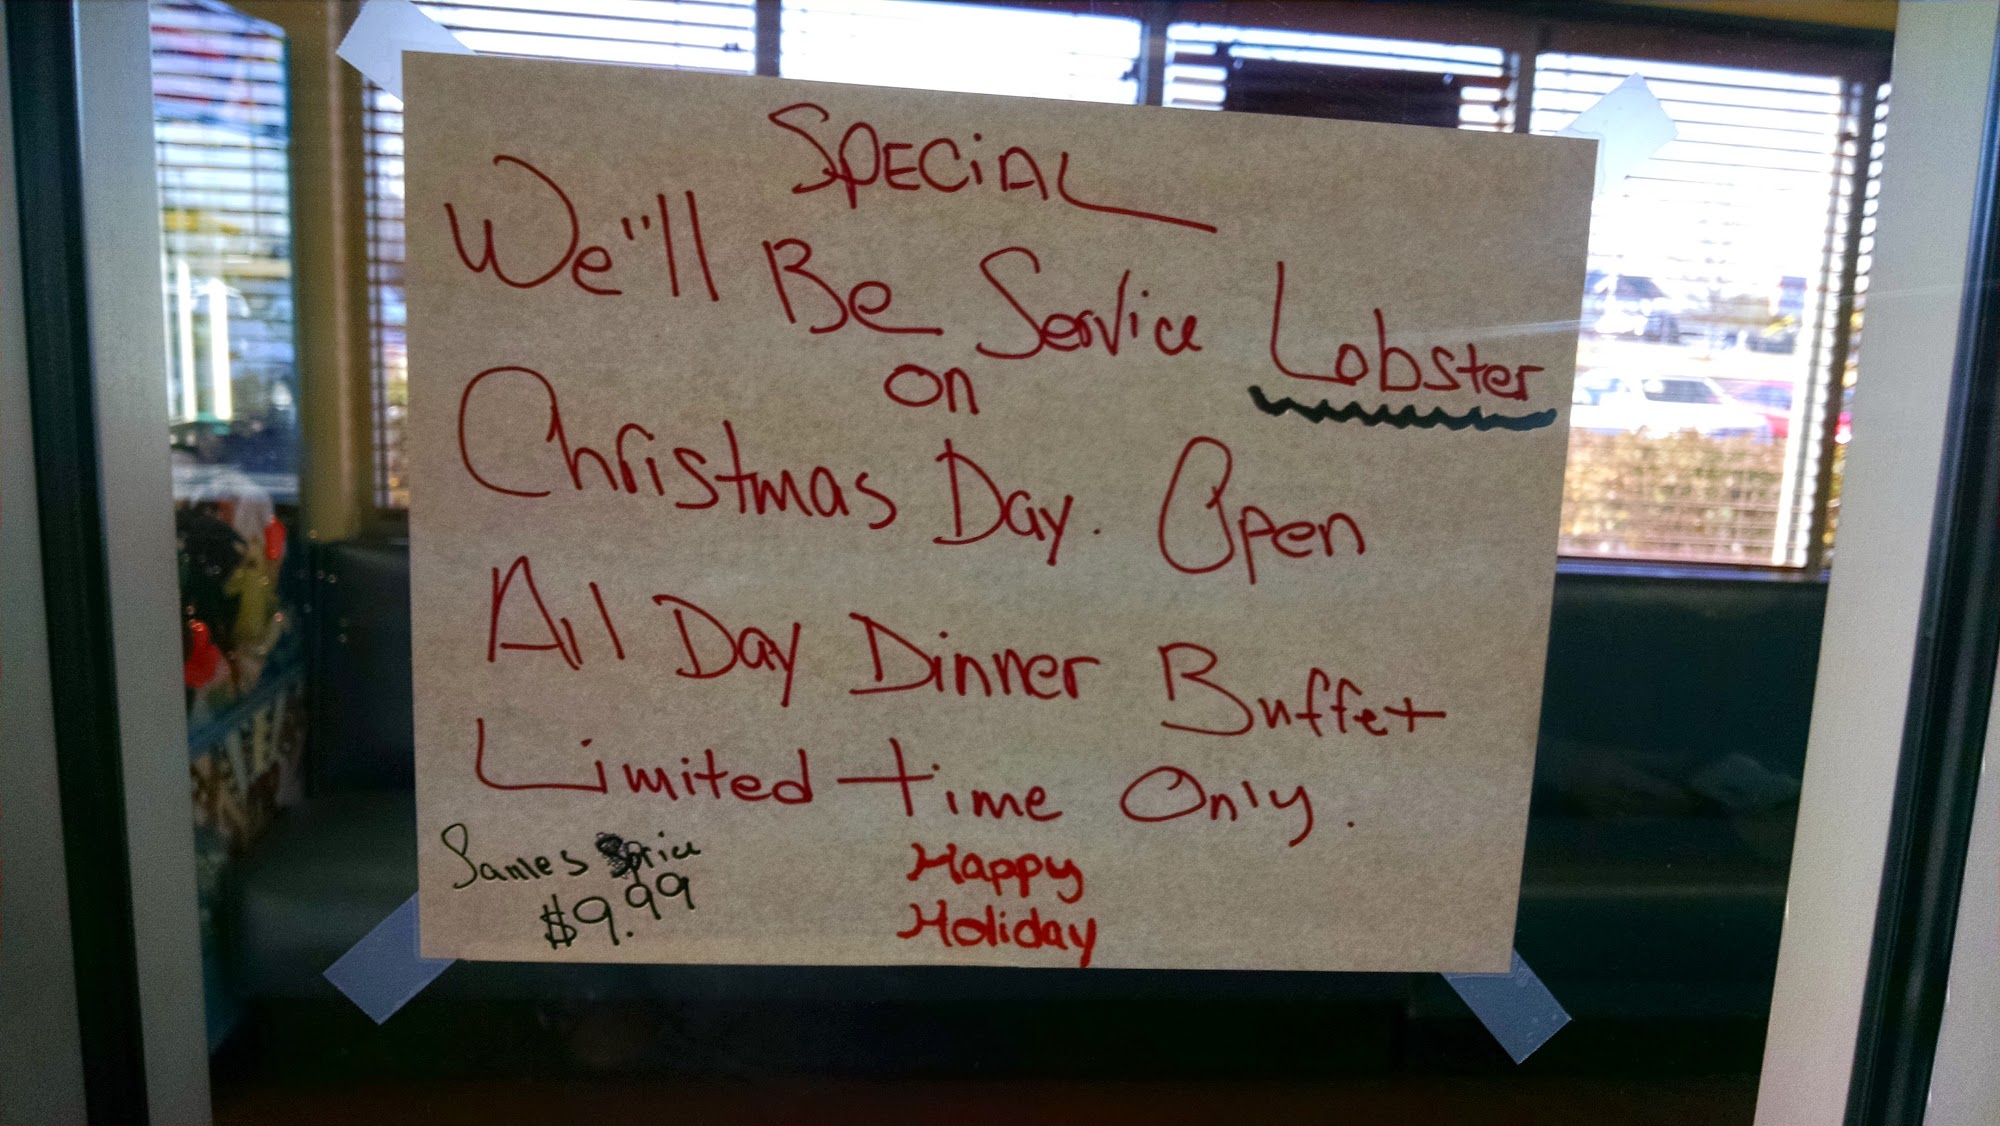 SPECiAL
We"ll Be Service Lobster
on
Christmas Day. Open
All Day Dinner Buffet
Limited time Only.
Sames Price
$9.99
Happy
Holiday